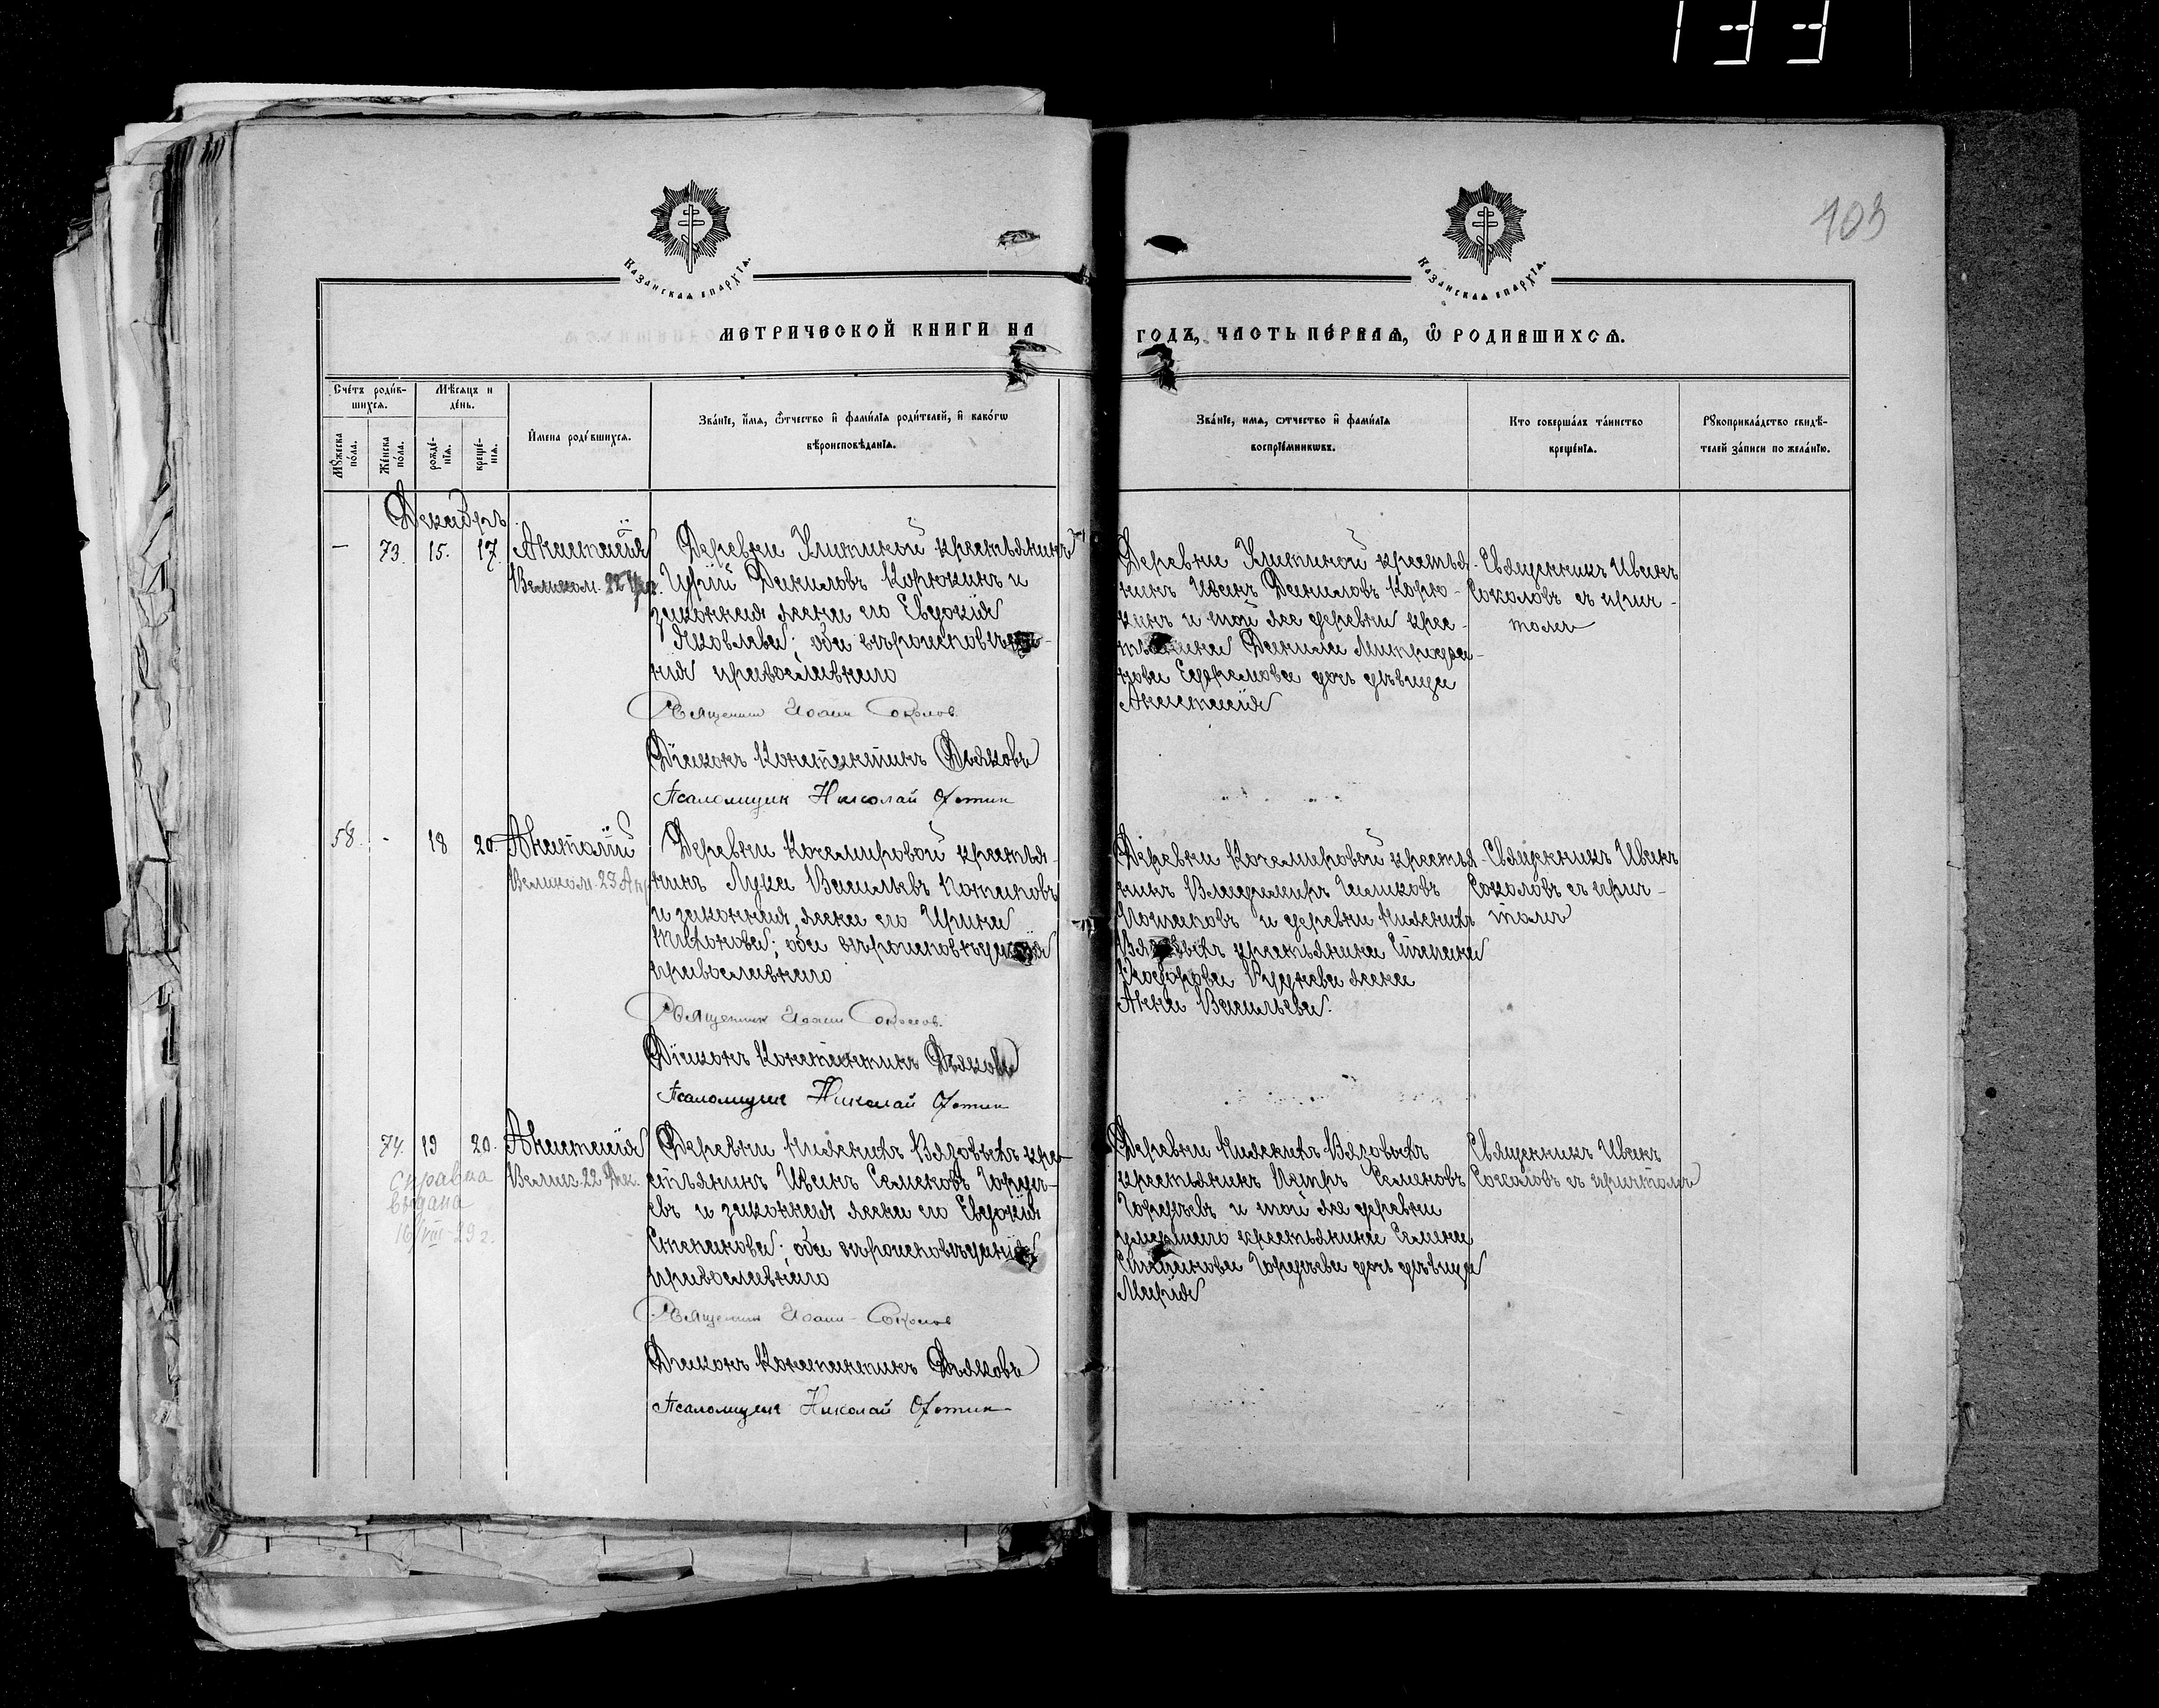 133
103
Казанская епархїя.
Казанская епархїя.
МЕТРИЧЕСКОЙ КНИГИ НА
ГОДЪ, ЧАСТЬ ПЕ́РВАЯ, Ѽ РОДИВШИХСЯ.
Счётъ роди́вшихся.
Мѣсяцъ и де́нь.
Мꙋ́жеска по́ла.
Же́нска по́ла.
рожде́нїя.
креще́нїя.
И҆мена роди́вшихся.
Зва́нїе, и҆́мя, ѻ҆́тчество и҆ фами́лїя роди́телей, и҆ како́гѡ
вѣроисповѣ́данїя.
Зва́нїе, имя, ѻтчество и҆ фами́лїя
воспрїе́мникѡвъ.
Кто соверша́лъ та́инство
креще́нїя.
Рꙋкоприкла́дство свидѣ́-
телей за́писи по жела́нїю.
Декабрь
— 73. 15. 17. Анастасія
Великом. 22
Деревни Клитиной крестьянинъ
Гурій Даниловъ Корюкинъ и
законная жена его Евдокія
Яковлева; оба вѣроисповѣда-
нія православнаго
Священник Иоанн Соколов.
Діаконъ Константинъ Дьяковъ
Псаломщик Николай
Деревни Клитиной крестья-
нинъ Иванъ Даниловъ Корю-
кинъ и той же деревни крес-
тьянина Данила Митрофа-
нова Ефремова дочь дѣвица
Анастасія
Священникъ Иванъ
Соколовъ съ прич-
томъ
58. - 18 20. Анатолій
Великом. 23 Ап
Деревни Кочемировой крестья-
нинъ Лука Васильевъ Потаповъ
и законная жена его Ирина
оба вѣроисповѣданія
православнаго
Священник Иоанн Соколов.
Діаконъ Константинъ Дьяковъ
Псаломщик Николай
Деревни Кочемировой крестья-
нинъ Владимиръ
Потаповъ и деревни Нижнихъ
Вязовыхъ крестьянина Степана
Руднева жена
Анна Васильева.
Священникъ Иванъ
Соколовъ съ прич-
томъ
74. 19 20. Анастасія
Велик. 22 Дек.
справка
выдана
16/VIII-29 г.
Деревни Нижнихъ Вязовыхъ кре-
стьянинъ Иванъ Семеновъ Горде-
евъ и законная жена его Евдокія
Степанова; оба вѣроисповѣданія
православнаго
Священник Иоанн Соколов
Діаконъ Константинъ Дьяковъ
Псаломщик Николай
Деревни Нижнихъ Вязовыхъ
крестьянинъ Петръ Семеновъ
Гордѣевъ и той же деревни
умершаго крестьянина Семена
Степанова Гордѣева дочь дѣвица
Марія
Священникъ Иванъ
Соколовъ съ причтомъ